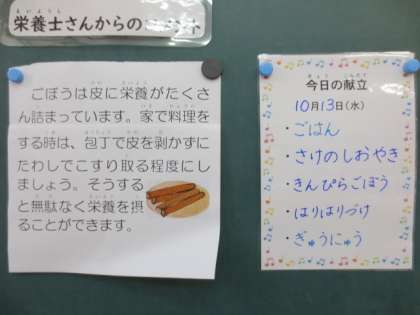 栄養士さんからの
ごぼうは皮に栄養がたくさ
ん詰まっています。家で料理を
する時は、包丁で皮を剥かずに
たわしでこすり取る程度にし
ましょう。そうする
と無駄なく栄養を摂
ることができます。
今日の献立
10月13日(水)
・ごはん
・さけのしおやき
・きんぴらごぼう
・はりはりづけ
・ぎゅうにゅう